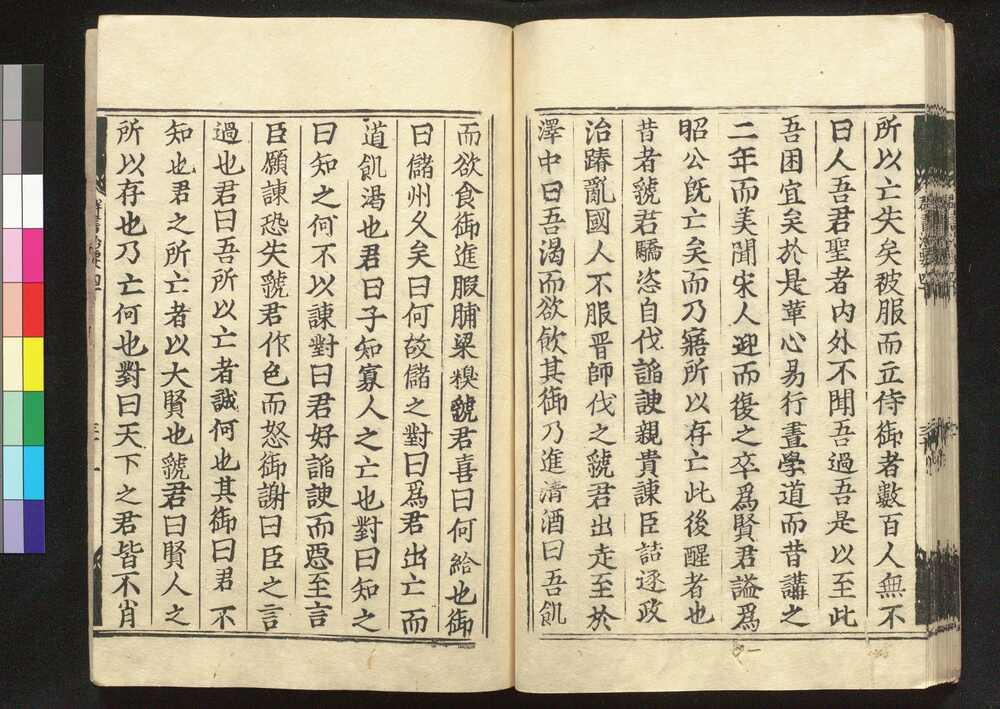 所以亡失矣被服而立侍御者數百人無不
曰人吾君聖者内外不聞吾過吾是以至此
吾困宜矣於是革心易行晝學道而昔講之
二年而美聞宋人迎而復之卒爲賢君謚爲
昭公旣亡矣而乃寤所以存亡此後醒者也
昔者虢君驕恣自伐謟諛親貴諫臣詰逐政
治踳亂國人不服晋師伐之虢君出走至於
澤中曰吾渴而欲飲其御乃進清酒曰吾飢
而欲食御進腶脯梁糗虢君喜曰何給也御
曰儲州久矣曰何故儲之對曰爲君出亡而
道飢渴也君曰子知寡人之亡也對曰知之
曰知之何不以諫對曰君好謟諛而惡至言
臣願諫恐失虢君作色而怒御謝曰臣之言
過也君曰吾所以亡者誠何也其御曰君不
知也君之所亡者以大賢也虢君曰賢人之
所以存也乃亡何也對曰天下之君皆不肖